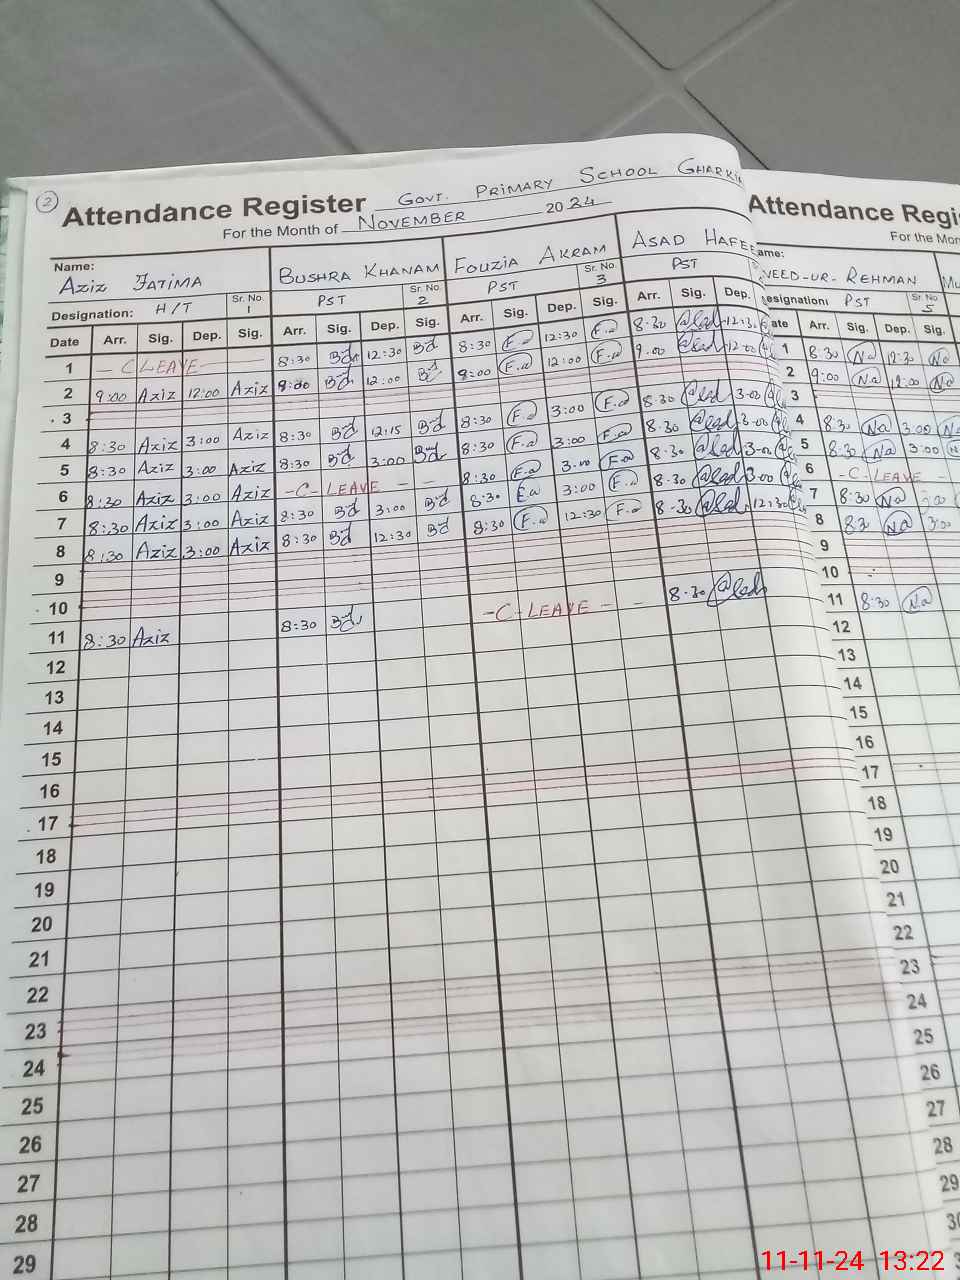 2
Attendance Register GOVT. PRIMARY SCHOOL
For the Month of NOVEMBER 2024
Name: AZIZ FATIMA BUSHRA KHANAM FOUZIA AKRAM ASAD
Designation: H/T Sr. No. 1 PST Sr. No. 2 PST Sr. No. 3 PST
Date Arr. Sig. Dep. Sig. Arr. Sig. Dep. Sig. Arr. Sig. Dep. Sig. Arr. Sig. Dep.
1 - C LEAVE 8:30 Bd 12:30 Bd 8:30 F.a 12:30 F.a 8.30 12.30
2 9:00 Aziz 12:00 Aziz 12:00 8:00 F.a 12:00 F.a 9.00 12.00
3
4 8:30 Aziz 3:00 Aziz 8:30 Bd 12:15 Bd 8:30 F.a 3:00 F.a 8.30 3.00
5 8:30 Aziz 3:00 Aziz 8:30 Bd 3:00 8:30 F.a 3:00 F.a 8.30 3.00
6 8:30 Aziz 3:00 Aziz - C - LEAVE - - 8:30 F.a 3.00 F.a 8.30 3.00
7 8:30 Aziz 3:00 Aziz 8:30 Bd 3:00 Bd 8:30 3:00 F.a 8.30 3.00
8 8:30 Aziz 3:00 Aziz 8:30 Bd 12:30 Bd 8:30 F.a 12:30 F.a 8.30 12.30
9
10
11 8:30 Aziz 8:30 Bd - C - LEAVE - - 8.30
12
13
14
15
16
17
18
19
20
21
22
23
24
25
26
27
28
29
Attendance
For the
REHMAN
Designation: PST Sr. No. 5
Arr. Sig. Dep. Sig.
1 8:30 Na 12:30 Na
2 9:00 Na 12:00 Na
3
4 8:30 Na 3:00
5 8:30 Na 3:00
6 - C - LEAVE -
7 8:30 Na
8 Na 3:00
9
10
11 8:30 Na
12
13
14
15
16
17
18
19
20
21
22
23
24
25
26
27
28
29
11-11-24 13:22